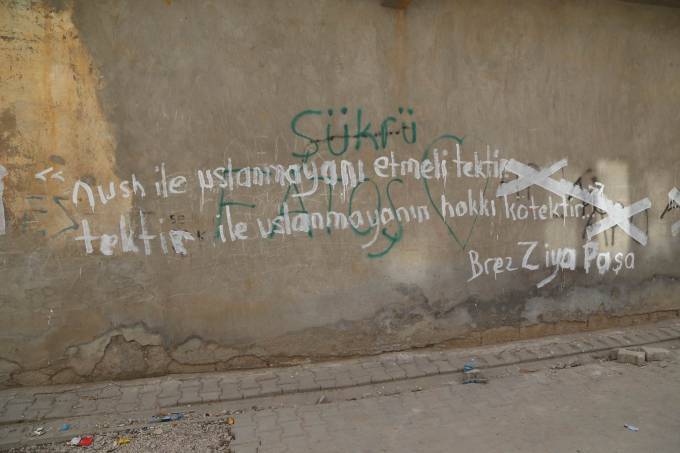 Şükrü
« nush ile uslanmayanı etmeli tektir
FATOŞ
tektir ile uslanmayanın hakkı kötektir
Brez Ziya Paşa